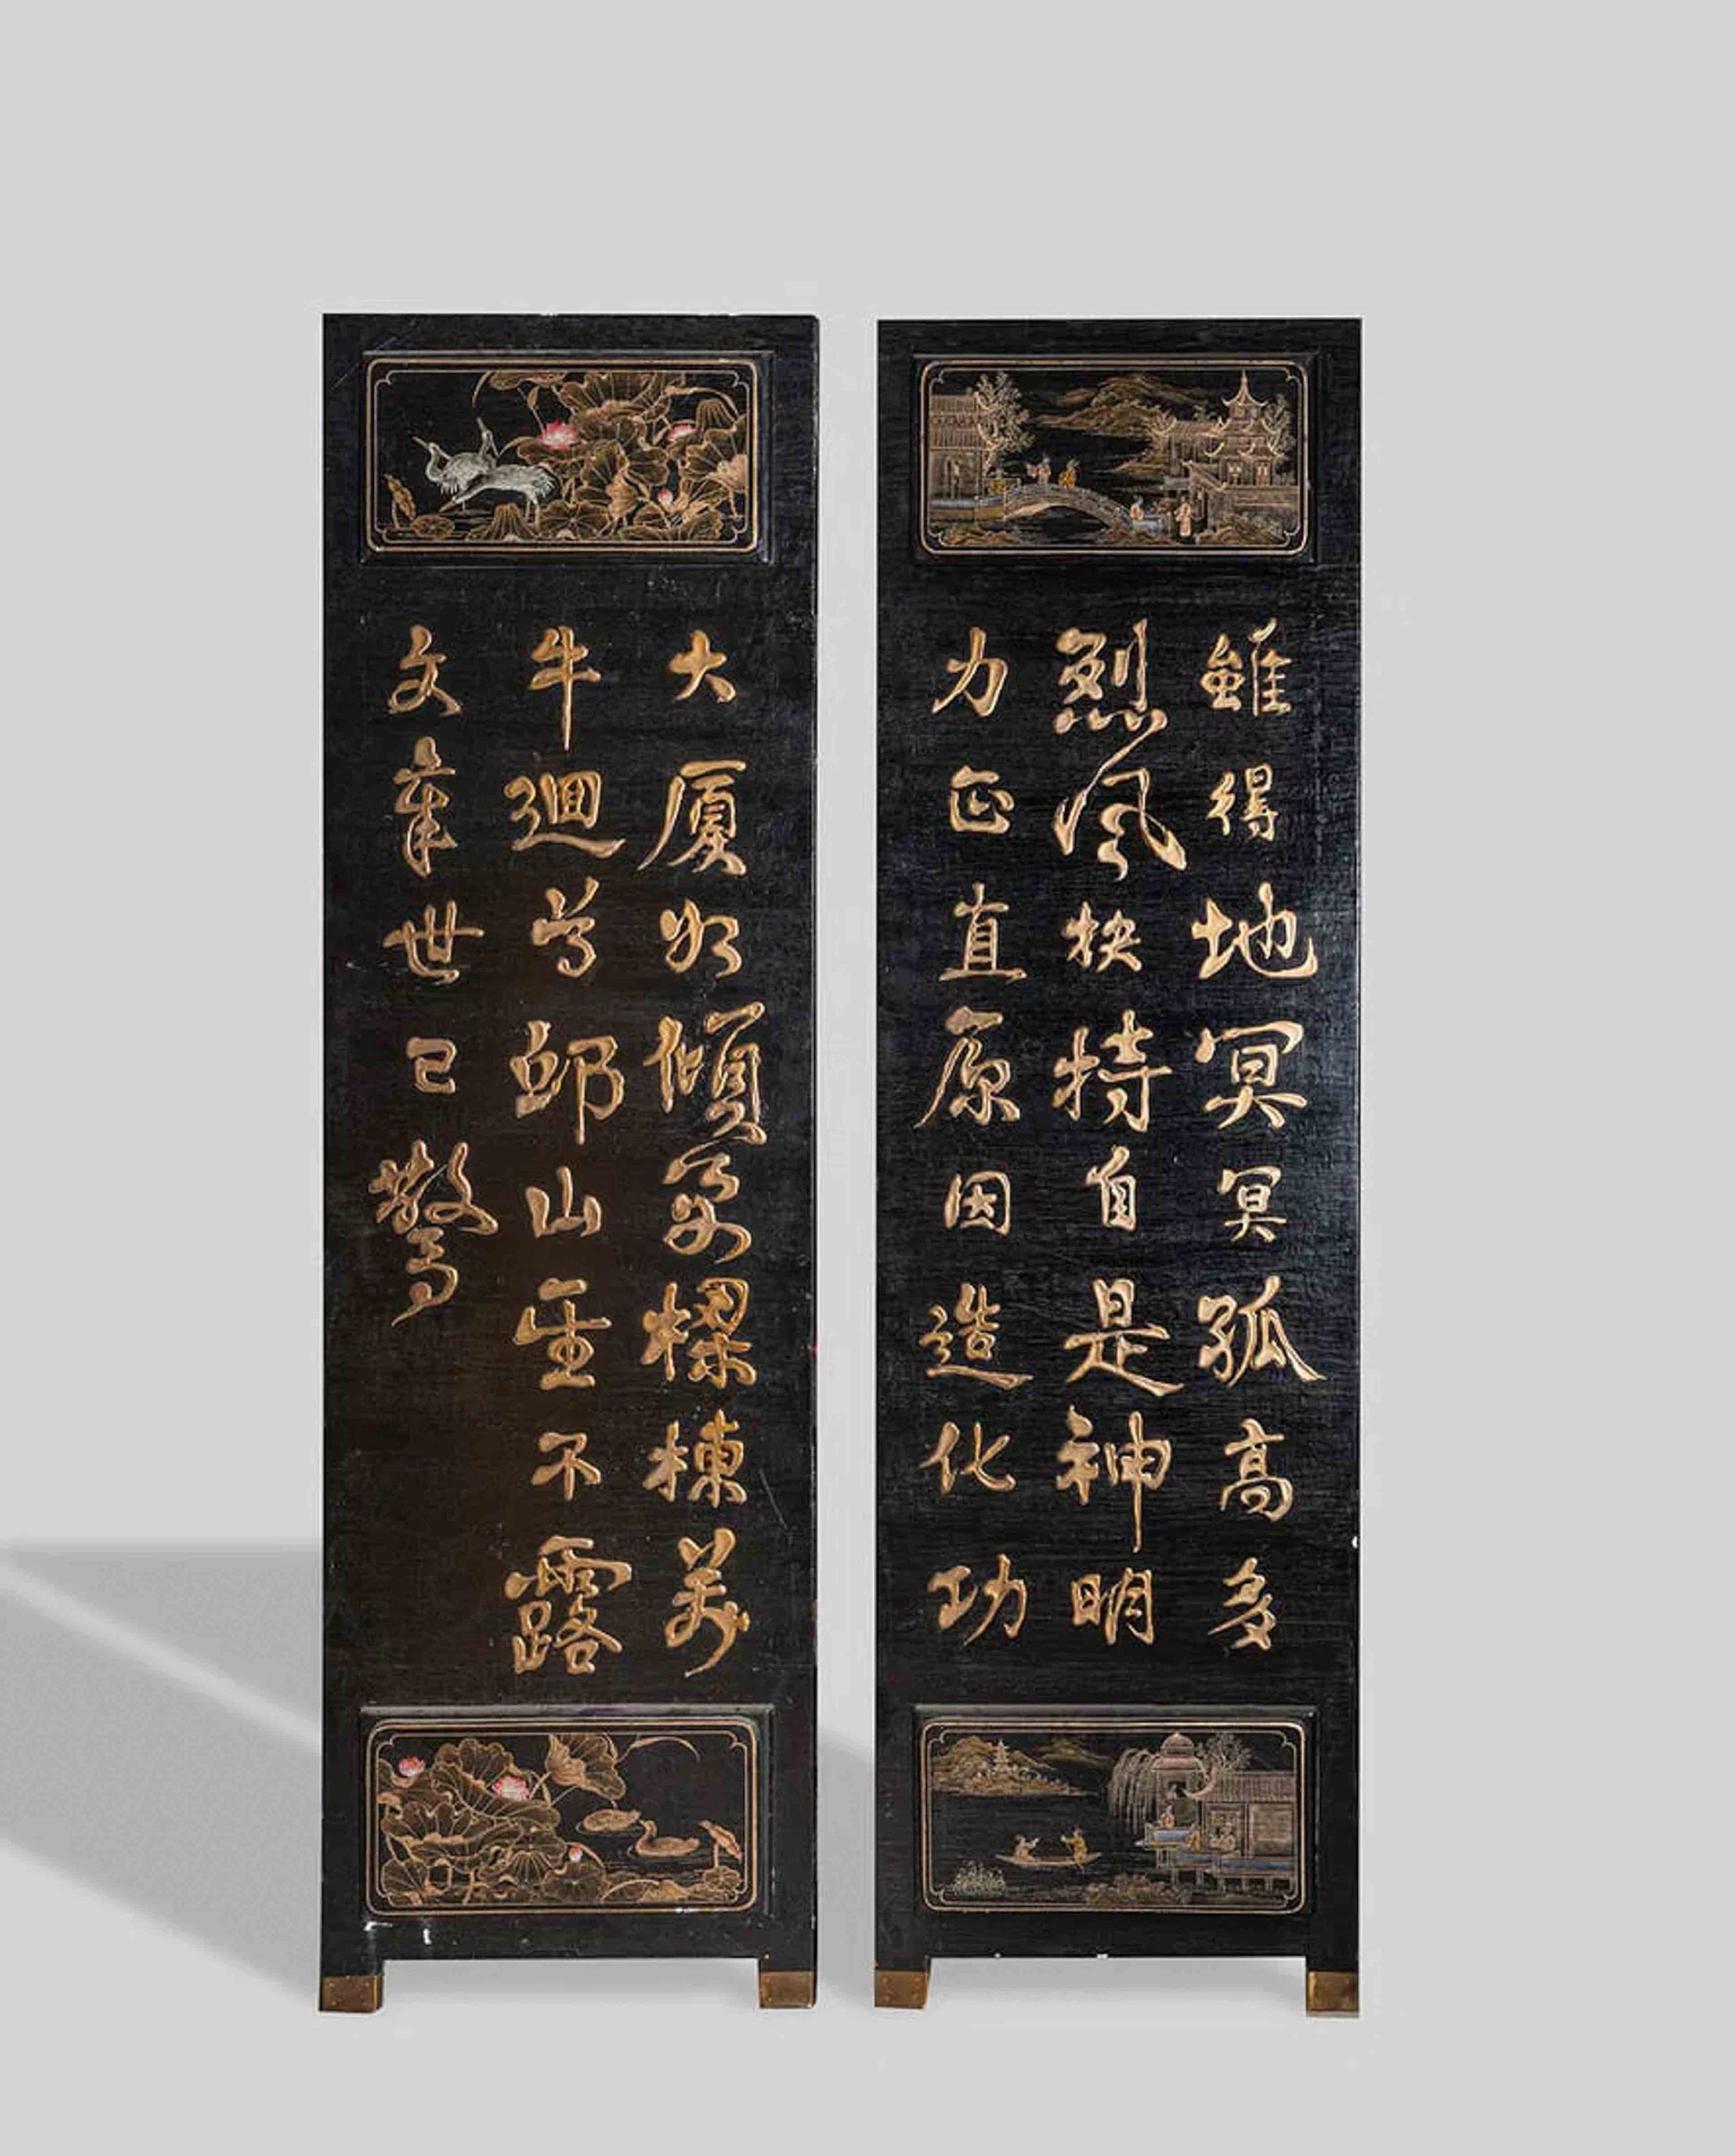 雖得地冥冥孤高多
烈風扶持自是神明
力正直原因造化功
大廈如傾要樑棟萬
牛迴首邱山重不露
文章世已驚